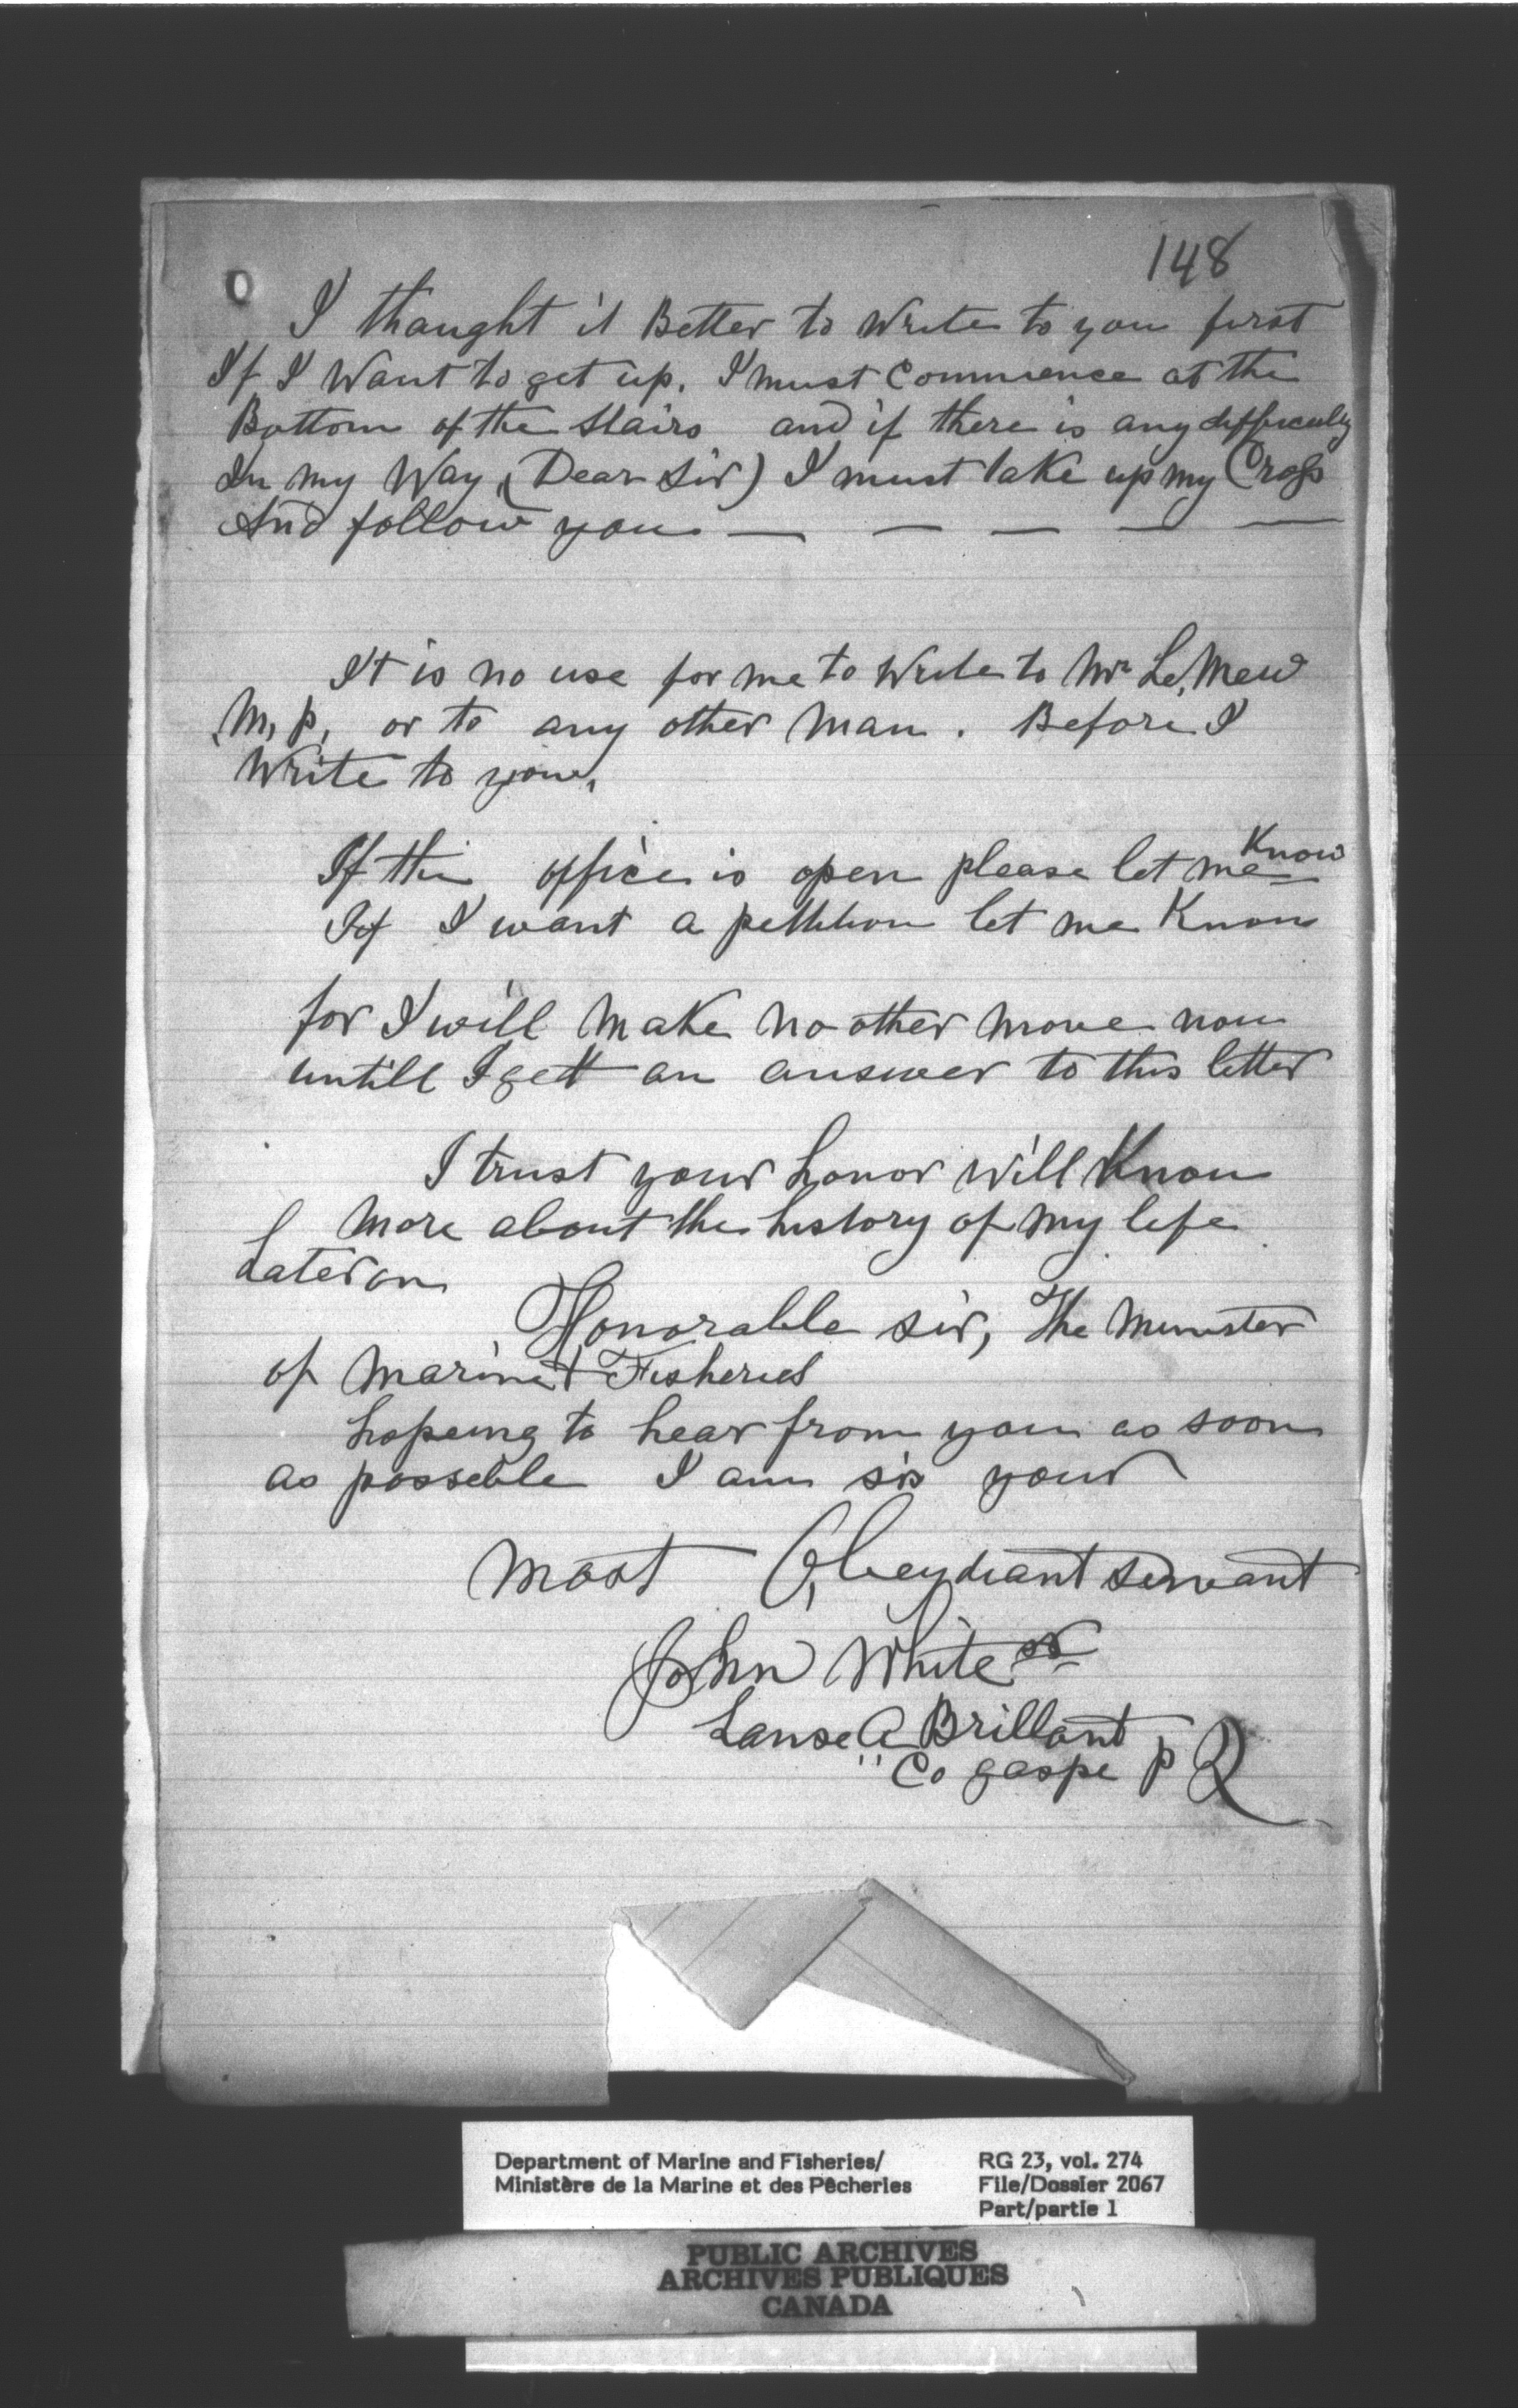 148
I thaught it Better to write to you first
If I Want to get up. I must Commence at the
Bottom of the Stairs and if there is any difficulty
In my Way, (Dear Sir) I must take up my Cross
And follow you — — — — —
It is no use for me to Write to Mr Le, Mew
M, P, or to any other Man. Before I
Write to you,
If the office is open please let me Know
If I want a petthion let me Know
for I will Make no other move now
untill I gett an answer to this letter
I trust your honor will Know
More about the history of my life
Later on
Honorable Sir, The Minister
of Marine & Fisheries
hopeing to hear from you as soon
as posseble I am sir your
most Obeydiant servant
John White sr
Lanse A Brillant
" Co gaspe P Q
Department of Marine and Fisheries/
Ministère de la Marine et des Pêcheries
RG 23, vol. 274
File/Dossier 2067
Part/partie 1
PUBLIC ARCHIVES
ARCHIVES PUBLIQUES
CANADA